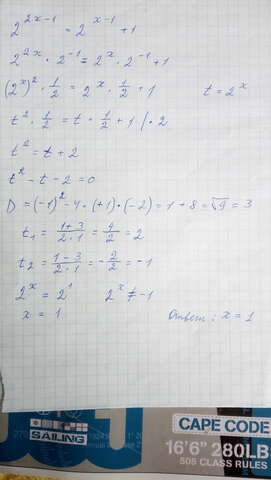 2^{2x-1} = 2^{x-1} + 1
2^{2x} · 2^{-1} = 2^x · 2^{-1} + 1
(2^x)^2 · 1/2 = 2^x · 1/2 + 1 t = 2^x
t^2 · 1/2 = t · 1/2 + 1 / · 2
t^2 = t + 2
t^2 - t - 2 = 0
D = (-1)^2 - 4 · (+1) · (-2) = 1 + 8 = √9 = 3
t_1 = (1+3)/(2·1) = 4/2 = 2
t_2 = (1-3)/(2·1) = -2/2 = -1
2^x = 2^1 2^x ≠ -1
x = 1 Ответ: x = 1
CAPE COD
SAILING
16'6" 280LB
505 CLASS RULES